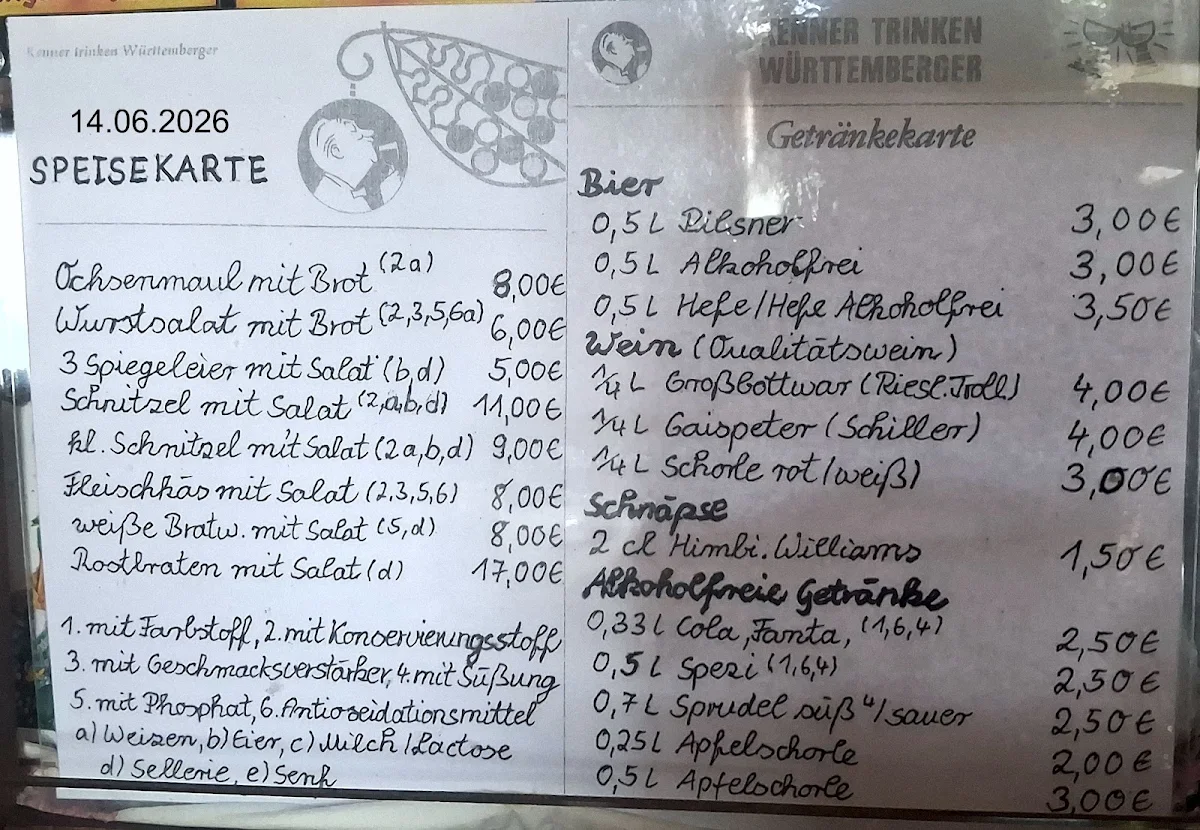 Kenner trinken Württemberger
14.06.2026
SPEISEKARTE
Ochsenmaul mit Brot (2a) 8,00€
Wurstsalat mit Brot (2,3,5,6a) 6,00€
3 Spiegeleier mit Salat (b,d) 5,00€
Schnitzel mit Salat (2,a,b,d) 11,00€
kl. Schnitzel mit Salat (2a,b,d) 9,00€
Fleischkäs mit Salat (2,3,5,6) 8,00€
weiße Bratw. mit Salat (5,d) 8,00€
Rostbraten mit Salat (d) 17,00€
1. mit Farbstoff, 2. mit Konservierungsstoff
3. mit Geschmacksverstärker, 4. mit Süßung
5. mit Phosphat, 6. Antioxidationsmittel
a) Weizen, b) Eier, c) Milch/Lactose
d) Sellerie, e) Senf
KENNER TRINKEN
WÜRTTEMBERGER
Getränkekarte
Bier
0,5 L Pilsner 3,00€
0,5 L Alkoholfrei 3,00€
0,5 L Hefe/Hefe Alkoholfrei 3,50€
Wein (Qualitätswein)
1/4 L Großbottwar (Riesl. Troll) 4,00€
1/4 L Gaispeter (Schiller) 4,00€
1/4 L Schorle rot/weiß) 3,00€
Schnäpse
2 cl Himbi. Williams 1,50€
Alkoholfreie Getränke
0,33 l Cola, Fanta, (1,6,4) 2,50€
0,5 L Spezi (1,6,4) 2,50€
0,7 L Sprudel süß 4/sauer 2,50€
0,25 L Apfelschorle 2,00€
0,5 L Apfelschorle 3,00€